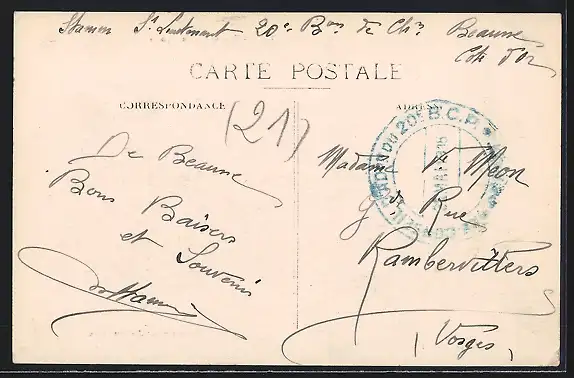 Stamm St Lieutenant 20e Bon de Chrs Beaune
Cote d'Or
CARTE POSTALE
CORRESPONDANCE
ADRESSE
(21)
De Beaune
Bons Baisers
et Souvenir
Stamm
DU 20E B.C.P.
Madame Ve Meon
Gde Rue
Rambervillers
(Vosges)